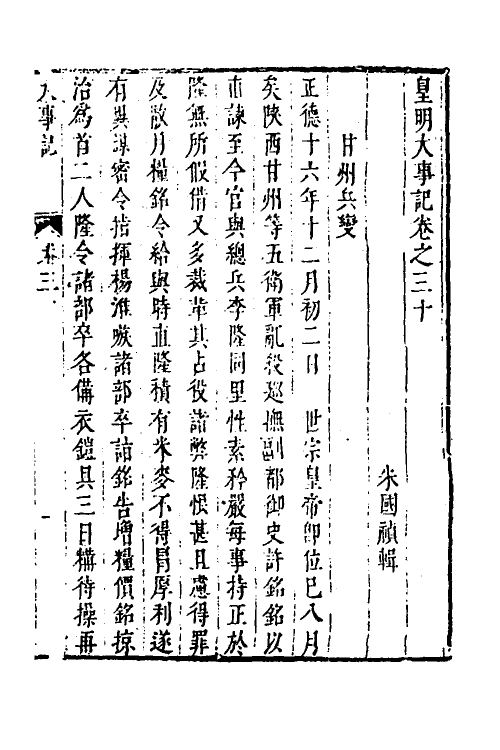 皇明大事記卷之三十
朱國禎輯
甘州兵變
正德十六年十二月初二日　世宗皇帝卽位已八月
矣陝西甘州等五衛軍亂殺巡撫副都御史許銘銘以
直諫至今官與總兵李隆同里性素矜嚴每事持正於
隆無所假借又多裁革其占役諸弊隆恨甚且慮得罪
及散月糧銘令給與時直隆積有米麥不得昌厚利遂
有異謀密令指揮楊淮嗾諸部卒詣銘告增糧價銘掠
治爲首二人隆令諸部卒各備衣鎧具三日糒待操再
大事記　卷三　一